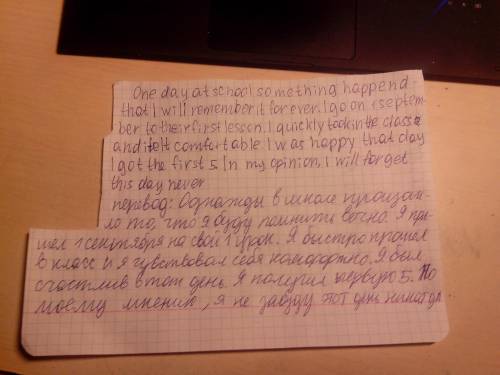 One day at school something happend
that I will remember it for ever. I go on 1 septem-
ber to their first lesson. I quickly took in the class
and i felt comfortable. I was happy that day
I got the first 5. In my opinion, I will forget
this day never
перевод: Однажды в школе произош-
ло то, что я буду помнить вечно. Я при-
шел 1 сентября на свой 1 урок. Я быстро прошел
в класс и я чувствовал себя комфортно. Я был
счастлив в тот день. Я получил первую 5. По
моему мнению, я не забуду тот день никогда.